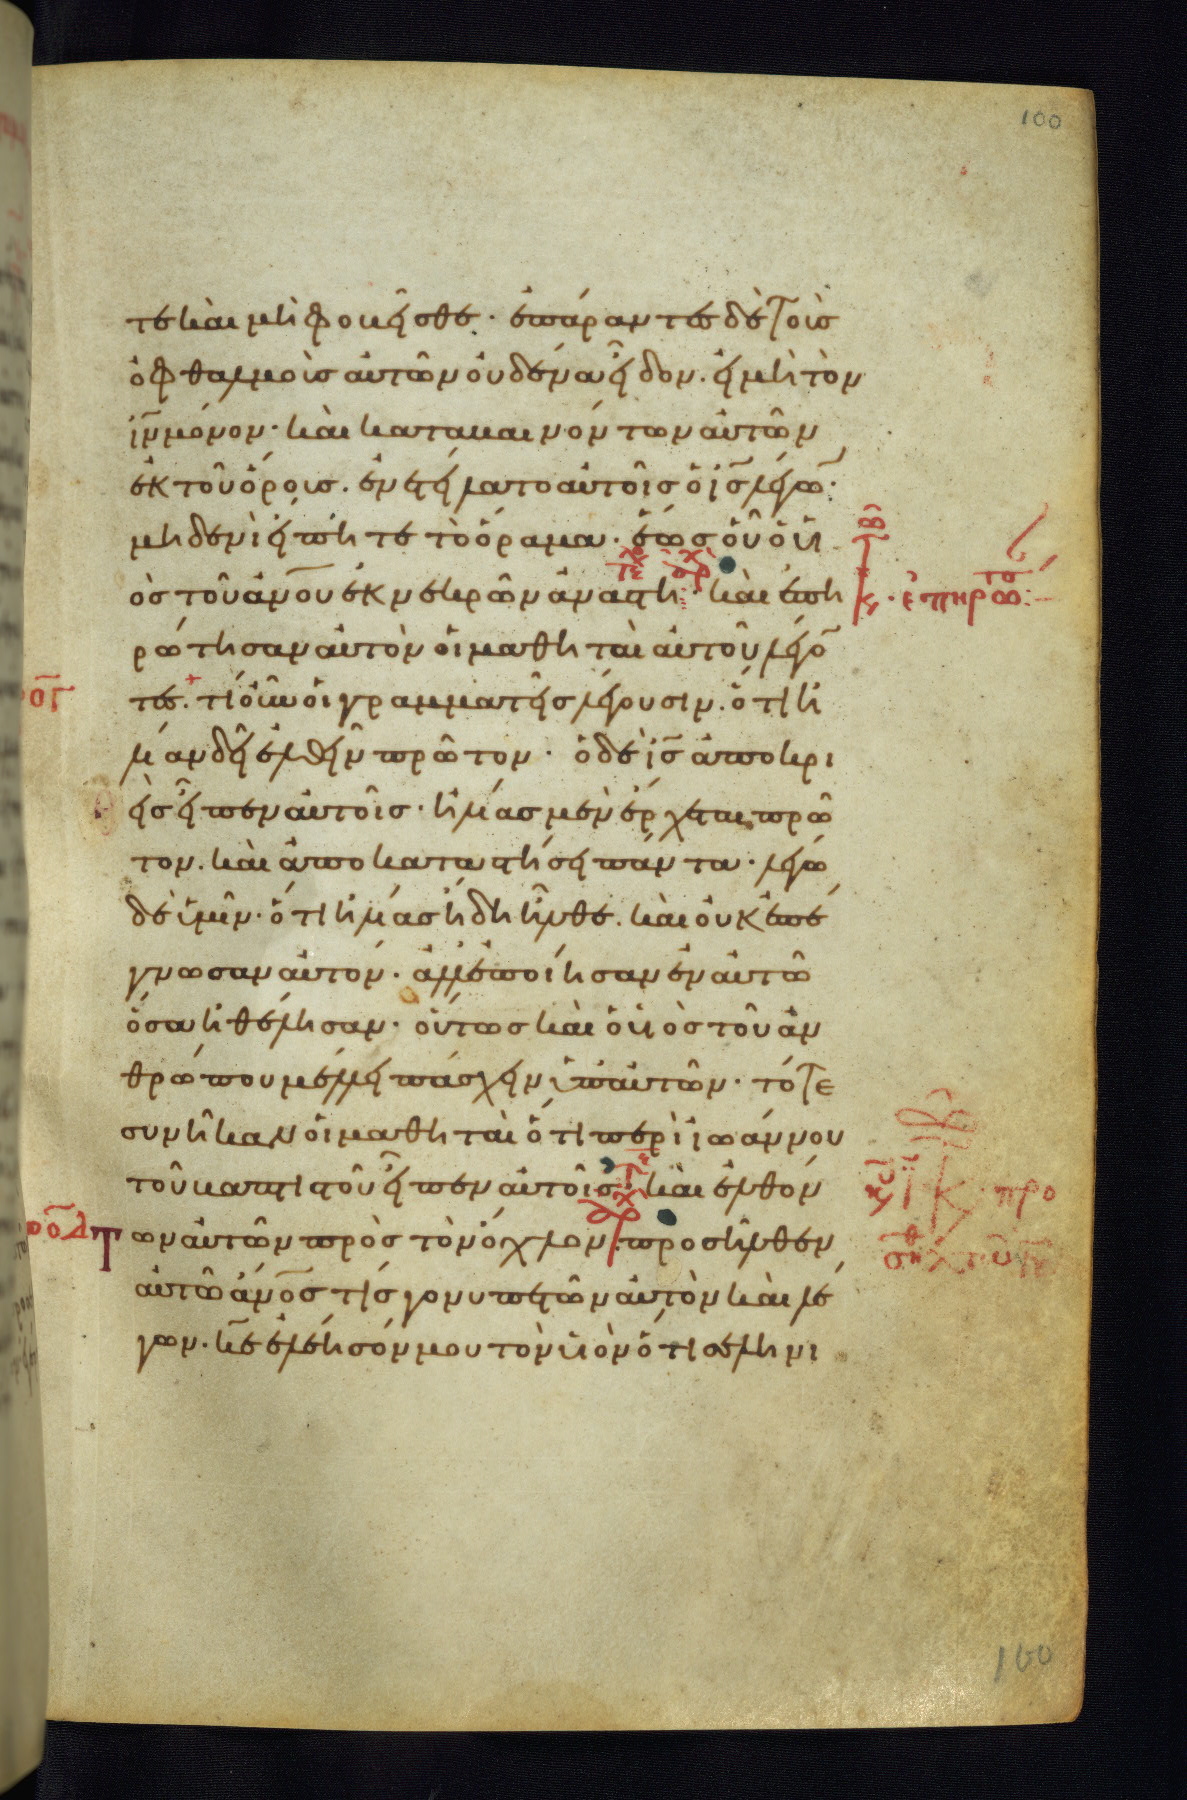 100
τε καὶ μὴ φοβεῖσθε· ἐπάραντες δὲ τοὺς
ὀφθαλμοὺς αὐτῶν οὐδένα εἶδον. εἰ μὴ τὸν
ἰν̅ μόνον· καὶ καταβαινόντων αὐτῶν
ἐκ τοῦ ὄρους. ἐνετείλατο αὐτοῖς ὁ ἰς̅ λέγω̅·
μηδενὶ εἴπητε τὸ ὅραμα· ἕως οὗ ὁ υἱ
ὸς τοῦ ἀν̅ου ἐκ νεκρῶν ἀναστῆ· καὶ ἐπη
ρώτησαν αὐτὸν οἱ μαθηταὶ αὐτοῦ λέγο̅
τες. τί οὖν οἱ γραμματεῖς λέγουσιν. ὅτι ἠ
λίαν δεῖ ἐλθεῖν πρῶτον· ὁ δὲ ἰς̅ ἀποκρι
θεὶς εἶπεν αὐτοῖς· ἠλίας μὲν ἔρχεται πρῶ
τον. καὶ ἀποκαταστήσει πάντα· λέγω
δὲ ὑμῖν· ὅτι ἠλίας ἤδη ἦλθε. καὶ οὐκ ἐπέ
γνωσαν αὐτόν. ἀλλ' ἐποίησαν ἐν αὐτῶ
ὅσα ἠθέλησαν· οὕτως καὶ ὁ υἱὸς τοῦ ἀν
θρώπου μέλλει πάσχειν ὑπ' αὐτῶν· τότε
συνῆκαν οἱ μαθηταὶ ὅτι περὶ ἰωάννου
τοῦ βαπτιστοῦ εἶπεν αὐτοῖς· καὶ ἐλθόν
των αὐτῶν πρὸς τὸν ὄχλον. προσῆλθεν
αὐτῶ ἀν̅ος τίς γονυπετῶν αὐτὸν καὶ λέ
γων· κε̅ ἐλέησόν μου τὸν υἱὸν ὅτι σεληνι
ρογ
ροδ
100